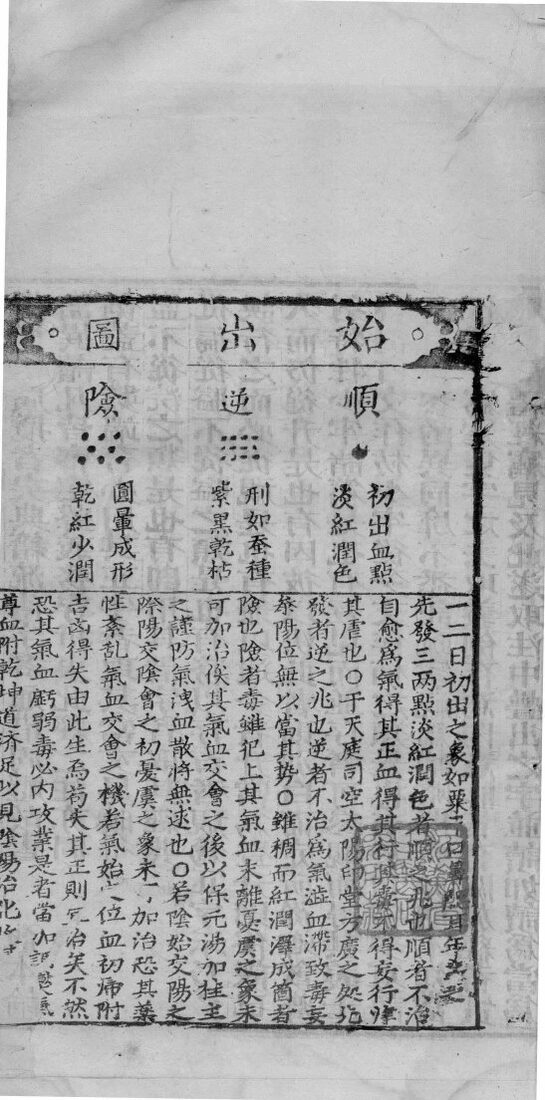 始出圖
順
初出血點
淡紅潤色
逆
刑如蚕種
紫黑乾枯
險
圓暈成形
乾紅少潤
一二日初出之象如粟
先發三两點淡紅潤色者順之兆也順者不治
自愈爲氣得其正血得其行其毒不得妄行肆
其虐也〇于天庭司空太陽印堂方廣之処先
發者逆之兆也逆者不治爲氣澁血滯致毒妄
叅陽位無以當其势〇雖稠而紅潤澤成箇者
險也險者毒雖犯上其氣血未離憂虞之象未
可加治俟其氣血交會之後以保元湯加桂主
之謹防氣洩血散將無逑也〇若陰始交陽之
際陽交陰會之初憂虞之象未可加治恐其藥
性紊乱氣血交會之機若氣始位血初歸附
吉凶得失由此生焉苟失其正則治矣不然
恐其氣血虧弱毒必内攻業是者當
尊血附乾坤道济足以見陰陽治化